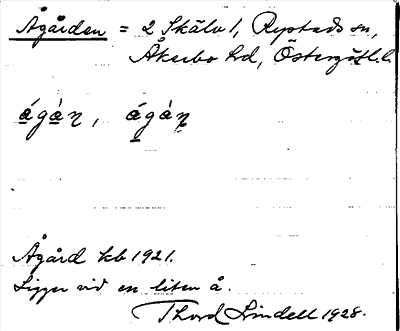 Ågården = 2 Skälv 1, Rystads sn,
Åkerbo hd, Östergötl. l.
ágàn, ágàn
Ågård kb 1921.
Ligger vid en liten å.
Thord Lindell 1928.